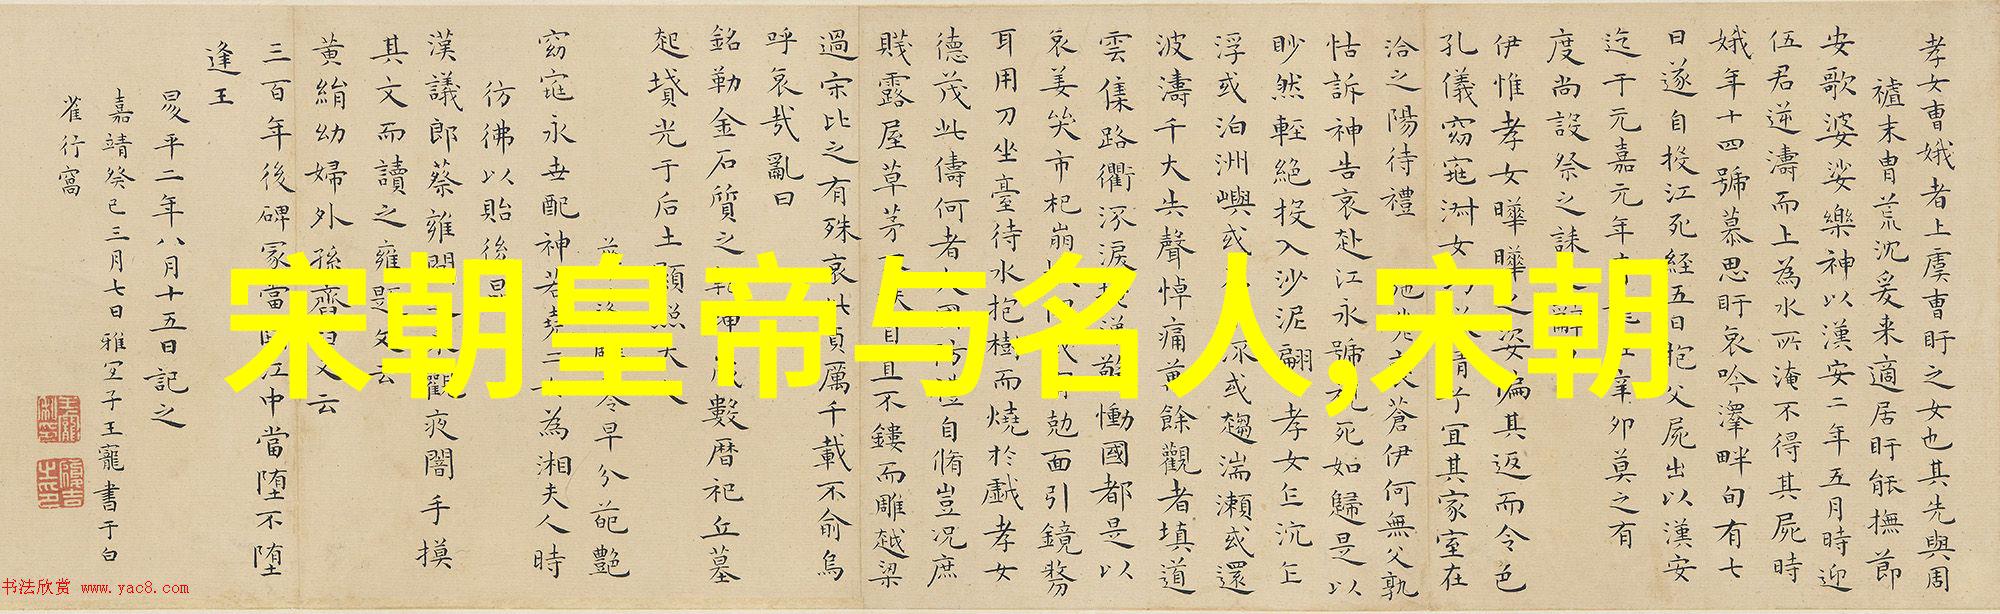 孝女曹娥者上虞曹盱之女也其先與周
末冑荒沈爰来適居盱能撫節
安歌婆娑樂神以漢安二年五月時迎
伍君逆濤而上為水所淹不得其屍時
娥年十四號慕思盱哀吟澤畔旬有七
日遂自投江死経五日抱父屍出以漢安
迄于元嘉元年在辛卯莫之有
度尚設祭之誄辭
伊惟孝女曄曄之姿偏其返而令色
孔儀窈窕淑女倩兮宜其家室在
洽之陽待禮
蒼伊何無父孰
怙訴神告哀赴江永號死如歸是以
眇然輕絕投入沙泥翩孝女乍沉乍
浮或泊洲嶼或流或趨湍瀨或還
波濤千夫失聲悼痛萬餘觀者填道
雲集路衢流淚掩涕驚慟國都是以
哀姜哭市杞崩剋面引鏡剺
耳用刀坐臺待水抱樹而燒於戲孝女
德茂此儔何者大國防禮自脩豈況庶
賤露屋草茅扶自直不鏤而雕越梁
過宋比之有殊哀此貞厲千載不俞烏
呼哀哉亂曰
銘勒金石質之乾坤歲數曆祀丘墓
起墳光于后土顯照天人
早分葩艷
窈窕永世配神若堯二女為湘夫人時
彷彿以貽後昆
漢議郎蔡雍聞之来觀夜闇手摸
其文而讀之雍題文云
黄絹幼婦外孫齏臼又云
三百年後碑冢當墮江中當墮不墮
逢王
昇平二年八月十五日記之
嘉靖癸巳三月七日雅宜子王寵書于白
雀行窩
宋朝皇帝与名人,宋朝
书法欣赏 www.yac8.com